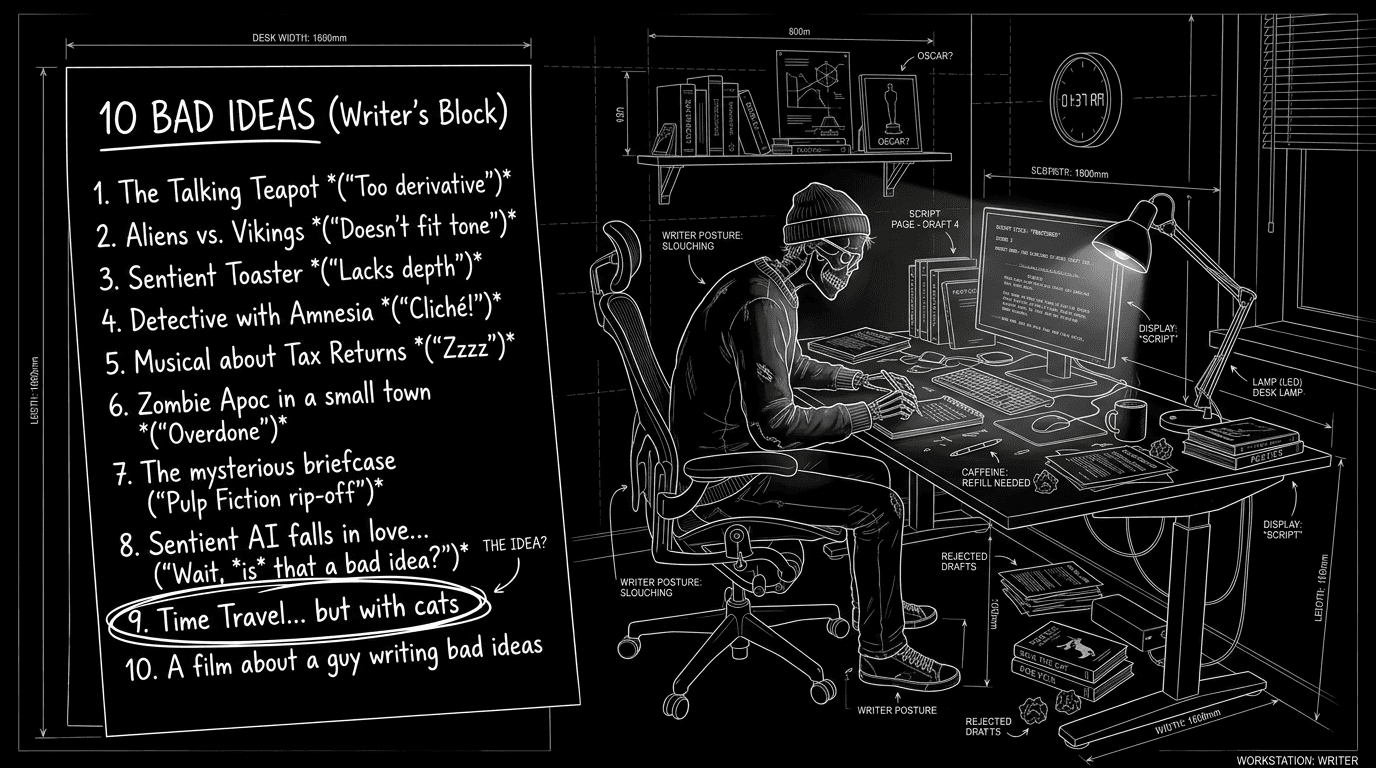 DESK WIDTH: 1600mm
10 BAD IDEAS (Writer's Block)
1. The Talking Teapot *("Too derivative")*
2. Aliens vs. Vikings *("Doesn't fit tone")*
3. Sentient Toaster *("Lacks depth")*
4. Detective with Amnesia *("Cliché!")*
5. Musical about Tax Returns *("Zzzz")*
6. Zombie Apoc in a small town
*("Overdone")*
7. The mysterious briefcase
("Pulp Fiction rip-off")*
8. Sentient AI falls in love...
("Wait, *is* that a bad idea?")*
THE IDEA?
9. Time Travel... but with cats
10. A film about a guy writing bad ideas
800m
OSCAR?
OECAR?
WRITER POSTURE:
SLOUCHING
SCRIPT
PAGE - DRAFT 4
1800mm
DISPLAY:
"SCRIPT"
LAMP (LED)
DESK LAMP
CAFFEINE:
REFILL NEEDED
POETICS
DISPLAY:
"SCRIPT"
REJECTED
DRAFTS
WRITER POSTURE:
SLOUCHING
WRITER POSTURE
THE CAT
REJECTED
DRATTS
WIDTH: 1600mm
WORKSTATION: WRITER